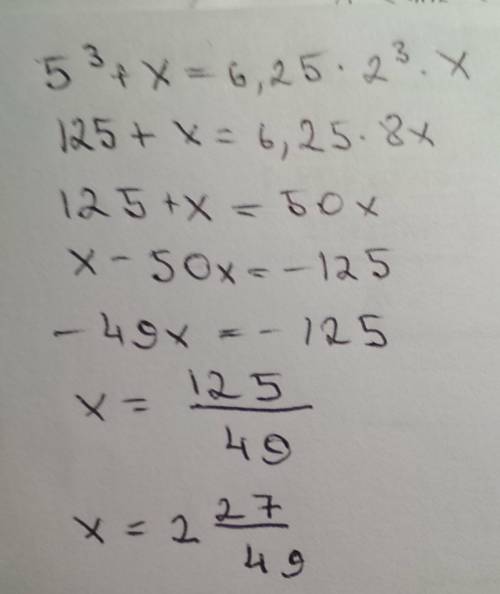 5³ + x = 6,25 · 2³ · x
125 + x = 6,25 · 8x
125 + x = 50x
x - 50x = - 125
- 49x = - 125
x = 125/49
x = 2 27/49